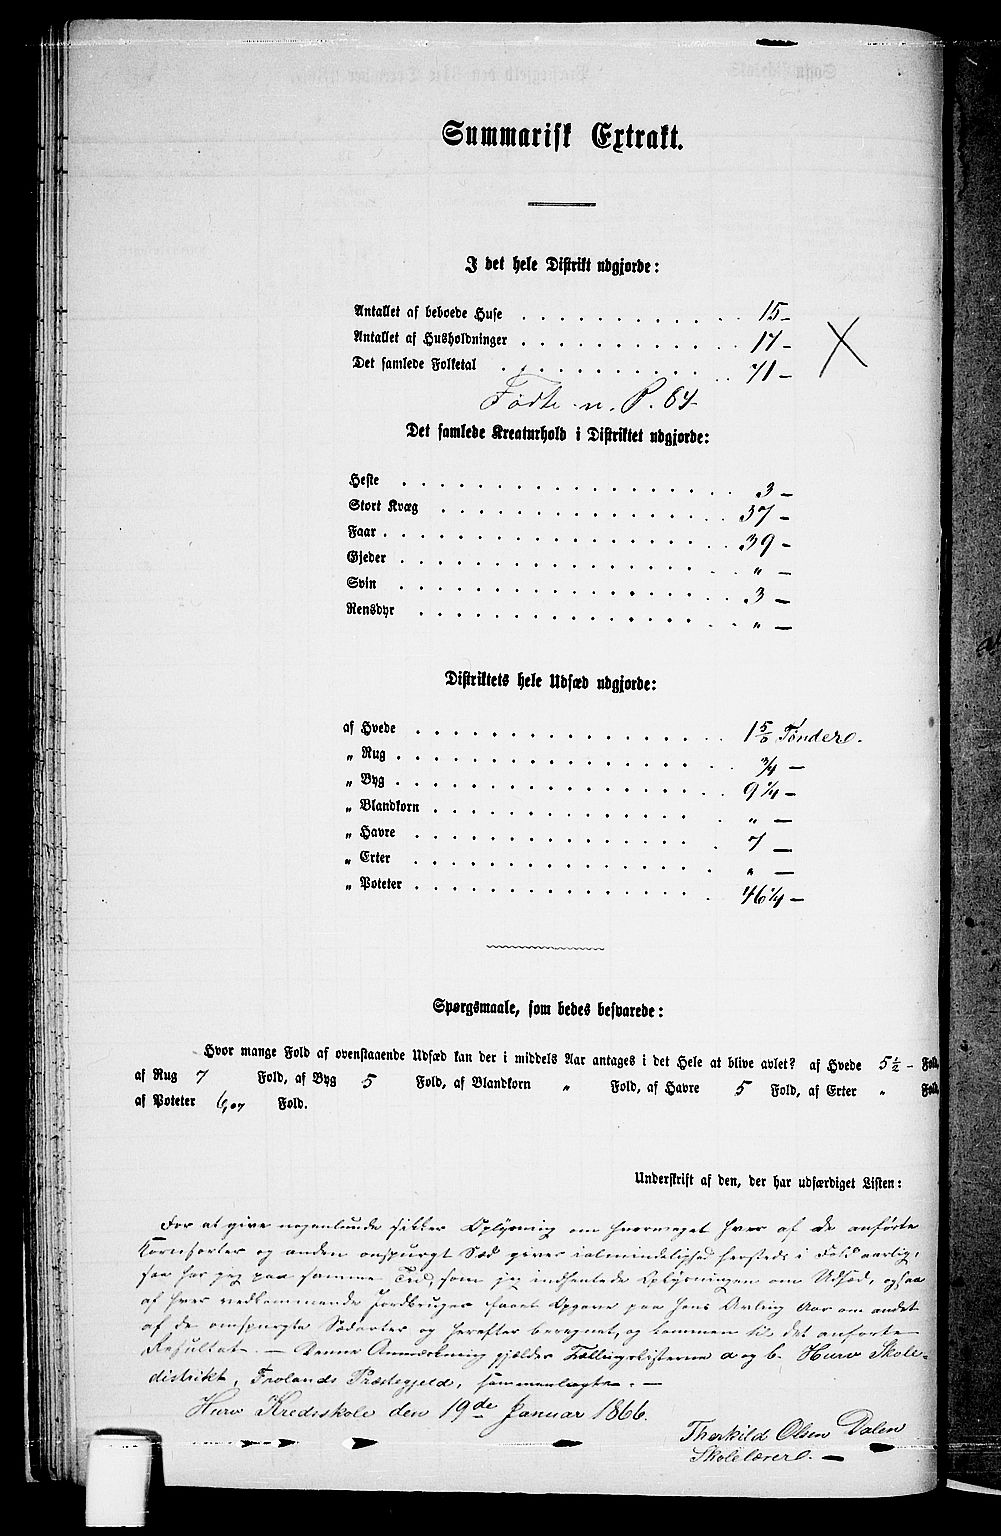 Summarisk Extrakt.
I det hele Distrikt udgjorde:
Antallet af beboede Huse . . . . . . . . . . 15 –
Antallet af Husholdninger . . . . . . . . . . 17 –
Det samlede Folketal . . . . . . . . . . 71 –
Fødte u. P. 64
Det samlede Kreaturhold i Distriktet udgjorde:
Heste . . . . . . . . . . 3 –
Stort Kvæg . . . . . . . . . . 37 –
Faar . . . . . . . . . . 39 –
Gjeder . . . . . . . . . . „ –
Svin . . . . . . . . . . 3 –
Rensdyr . . . . . . . . . . „ –
Distriktets hele Udsæd udgjorde:
af Hvede . . . . . . . . . . 1 5/6 Tønder.
„ Rug . . . . . . . . . . 3/4 –
„ Byg . . . . . . . . . . 9 1/4 –
„ Blandkorn . . . . . . . . . . „ –
„ Havre . . . . . . . . . . 7 –
„ Erter . . . . . . . . . . „ –
„ Poteter . . . . . . . . . . 46 1/4 –
Spørgsmaale, som bedes besvarede:
Hvor mange Fold af ovenstaaende Udsæd kan der i middels Aar antages i det Hele at blive avlet? af Hvede 5 1/2 – Fold,
af Rug 7 Fold, af Byg 5 Fold, af Blandkorn „ Fold, af Havre 5 Fold, af Erter „ Fold,
af Poteter 6,07 Fold.
Underskrift af den, der har udfærdiget Listen:
For at give nogenlunde sikker Oplysning om hvormeget hver af de anførte
Kornsorter og anden omspurgt Sæd giver i almindelighed hersteds i Fold aarlig,
saa har jeg paa samme Tid, som jeg indhentede Oplysningen om Udsæd, ogsaa
af hver vedkommende Jordbruger faaet Opgave paa hans Avling Aar om andet
af de omspurgte Sædarter og herefter beregnet, og kommen til det anførte
Resultat. – Denne Anmærkning gjælder Tællingslisterne a og b. Hurv Skole-
distrikt, Frolands Præstegjeld, sammenlagte. –
Hurv Kredsskole den 19de Januar 1866.
Therkild Olsen Dalen
Skolelærer. –